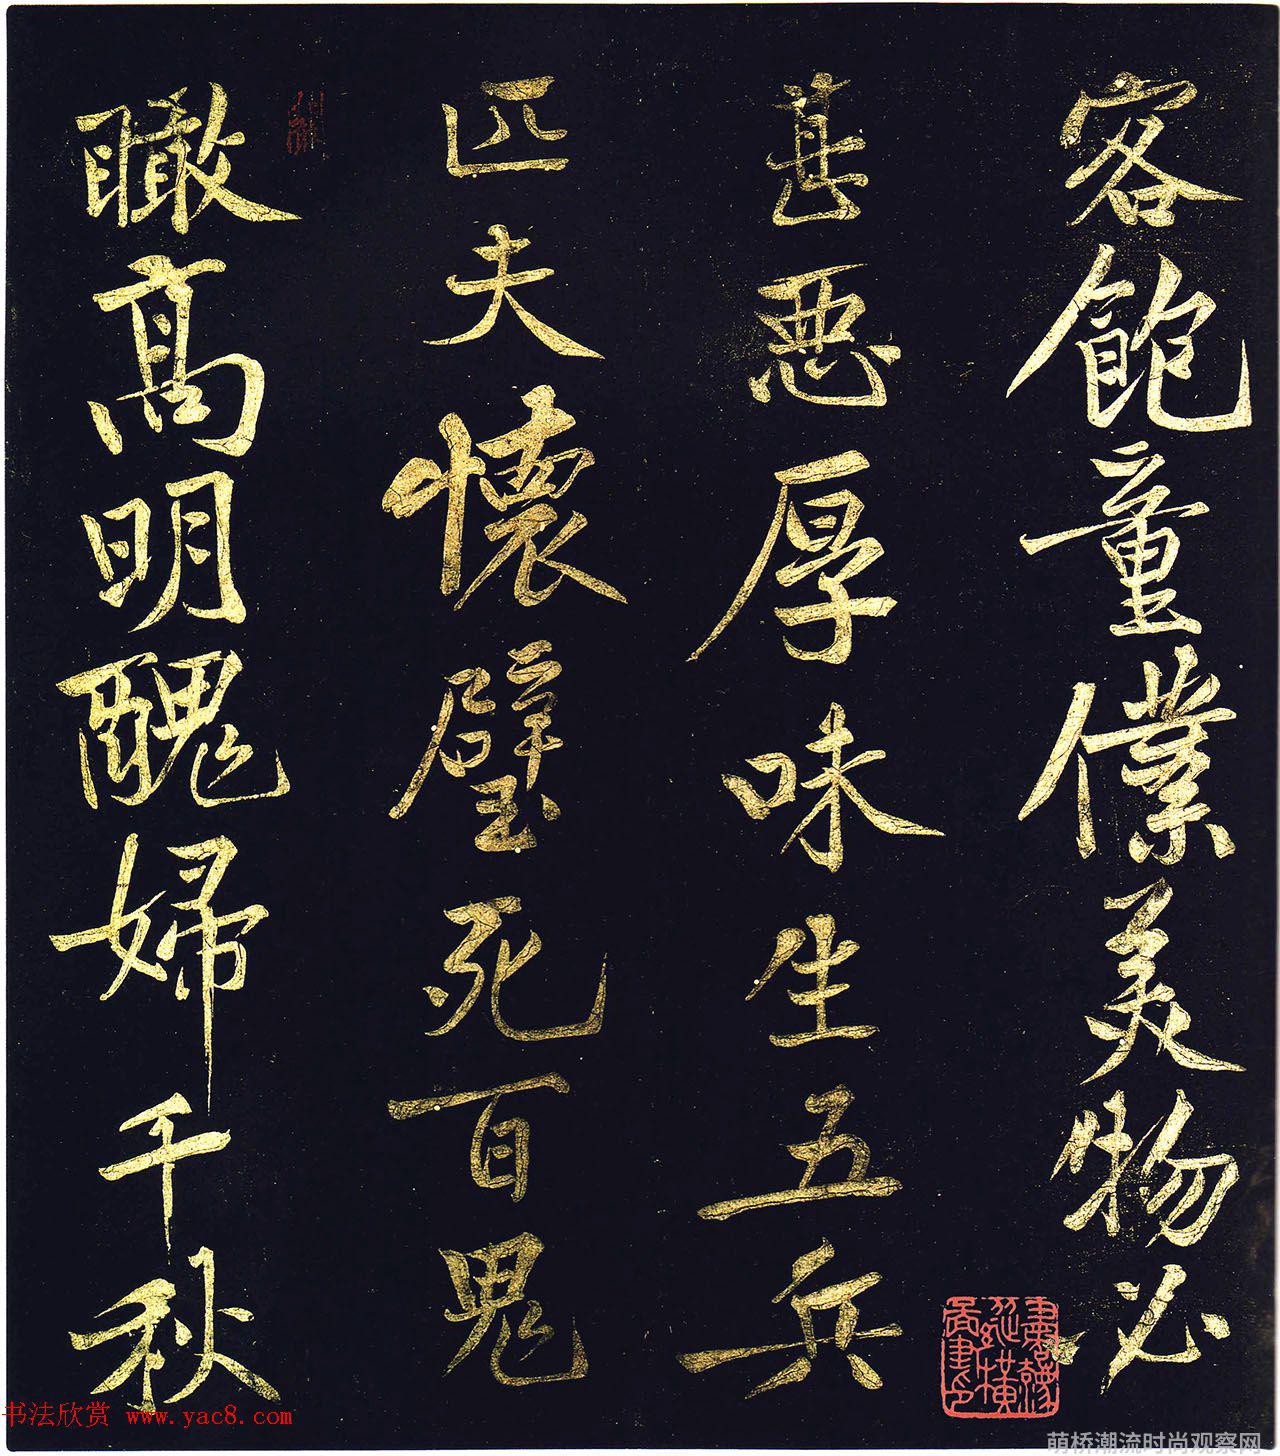 客飽童僕美物必
甚惡厚味生五兵
匹夫懷璧死百鬼
瞰高明醜婦千秋
书法欣赏 www.yac8.com
萌桥潮流时尚观察网